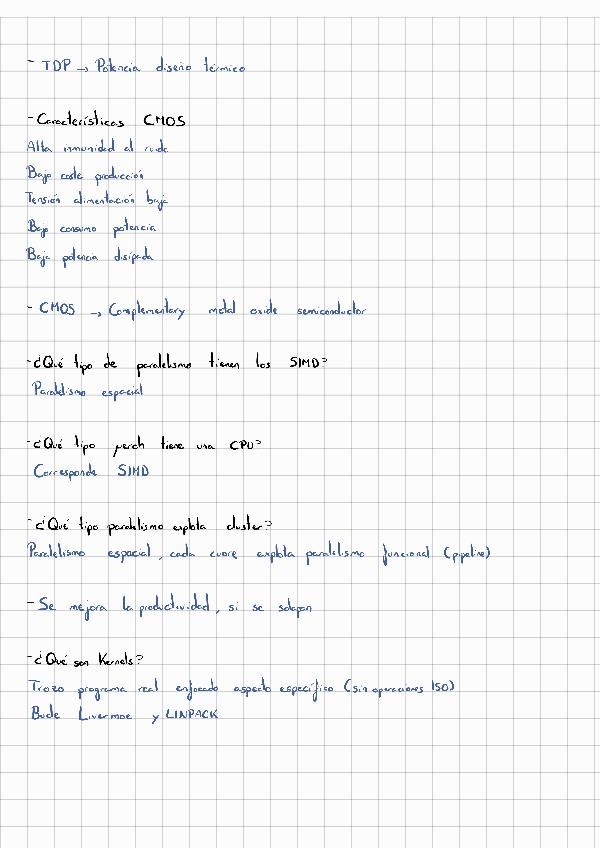 - TDP → Potencia diseño térmico
- Características CMOS
Alta inmunidad al ruido
Bajo coste producción
Tensión alimentación baja
Bajo consumo potencia
Baja potencia disipada
- CMOS → Complementary metal oxide semiconductor
- ¿Qué tipo de paralelismo tienen los SIMD?
Paralelismo espacial
- ¿Qué tipo tiene una CPU?
Corresponde SIMD
- ¿Qué tipo paralelismo explota cluster?
Paralelismo espacial, cada cuore explota paralelismo funcional (pipeline)
- Se mejora la productividad, si se solapan
- ¿Qué son Kernels?
Trozo programa real enfocado aspecto específico (sin operaciones ISO)
Bucle Livermoe y LINPACK